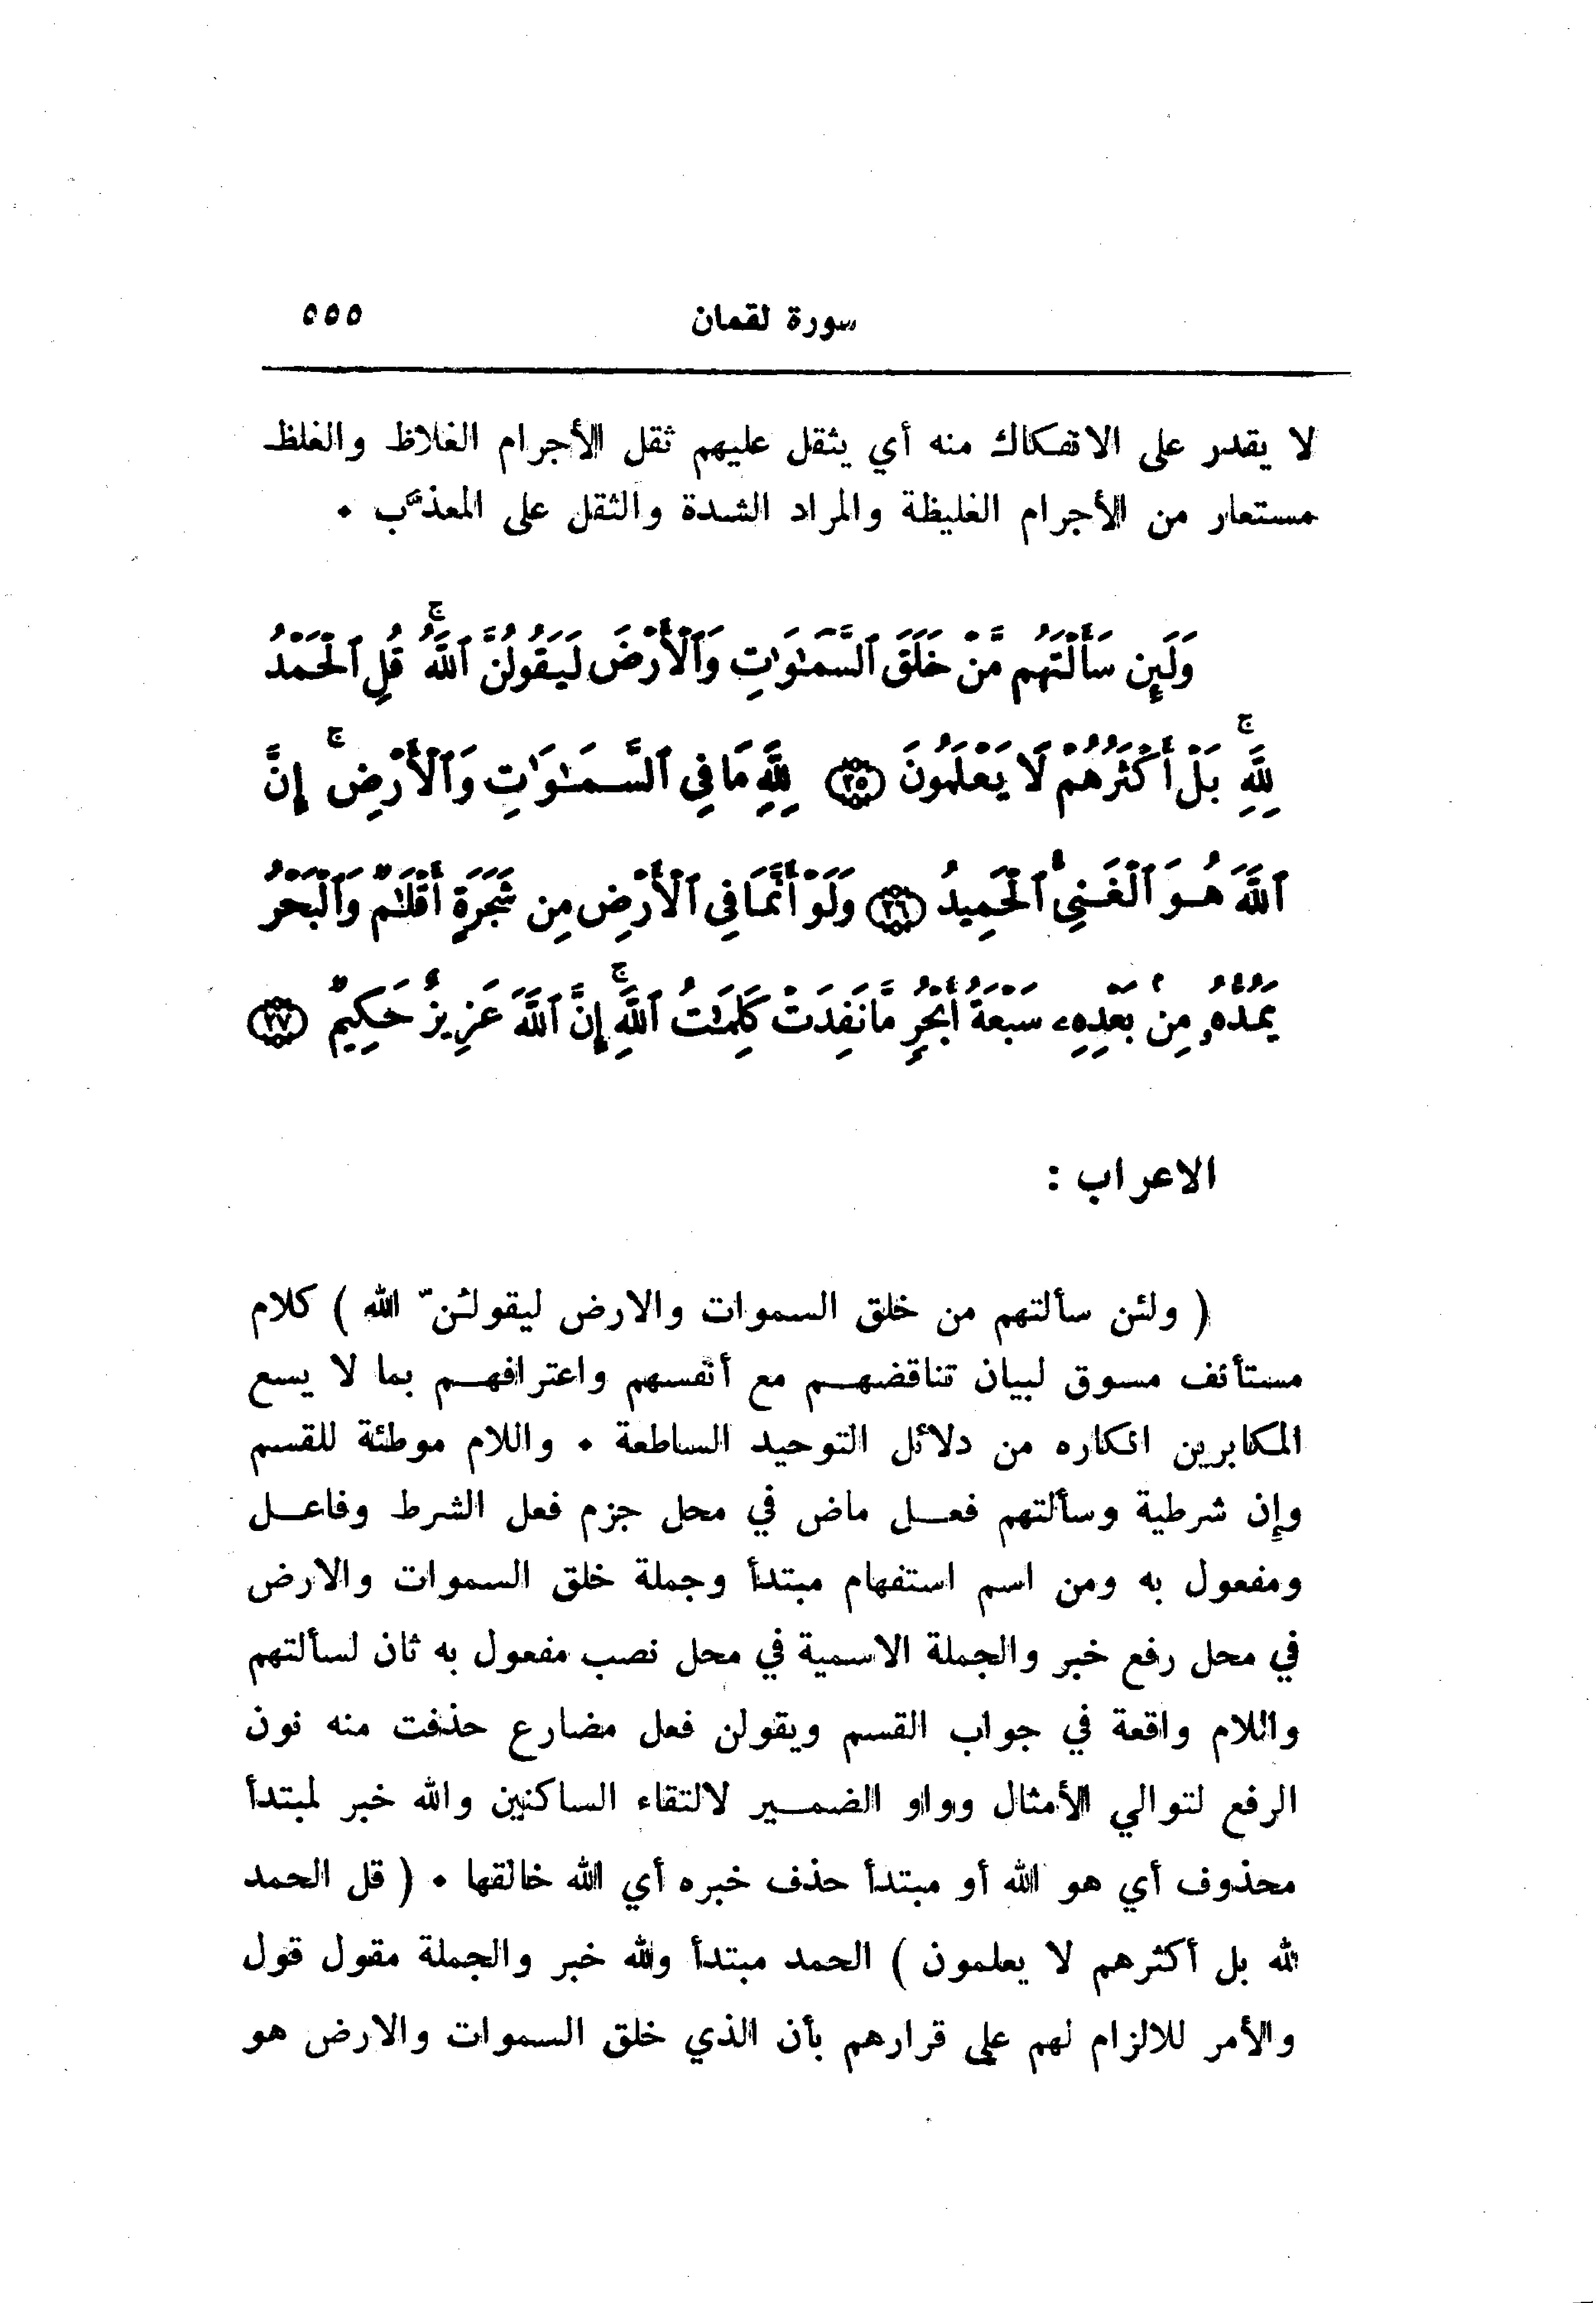 سورة لقمان ٥٥٥
لا يقدر على الانفكاك منه أي يثقل عليهم ثقل الأجرام الغلاظ والغلظ
مستعار من الأجرام الغليظة والمراد الشدة والثقل على المعذَّب ٠
وَلَئِن سَأَلْتَهُم مَّنْ خَلَقَ ٱلسَّمَـٰوَٰتِ وَٱلْأَرْضَ لَيَقُولُنَّ ٱللَّهُ ۚ قُلِ ٱلْحَمْدُ
لِلَّهِ ۚ بَلْ أَكْثَرُهُمْ لَا يَعْلَمُونَ ﴿٢٥﴾ لِلَّهِ مَا فِى ٱلسَّمَـٰوَٰتِ وَٱلْأَرْضِ ۚ إِنَّ
ٱللَّهَ هُوَ ٱلْغَنِىُّ ٱلْحَمِيدُ ﴿٢٦﴾ وَلَوْ أَنَّمَا فِى ٱلْأَرْضِ مِن شَجَرَةٍ أَقْلَـٰمٌ وَٱلْبَحْرُ
يَمُدُّهُۥ مِنۢ بَعْدِهِۦ سَبْعَةُ أَبْحُرٍ مَّا نَفِدَتْ كَلِمَـٰتُ ٱللَّهِ ۚ إِنَّ ٱللَّهَ عَزِيزٌ حَكِيمٌ ﴿٢٧﴾
الاعراب :
( ولئن سألتهم من خلق السموات والارض ليقولُنّ الله ) كلام
مستأنف مسوق لبيان تناقضهم مع أنفسهم واعترافهم بما لا يسع
المكابرين انكاره من دلائل التوحيد الساطعة ٠ واللام موطئة للقسم
وإن شرطية وسألتهم فعل ماض في محل جزم فعل الشرط وفاعل
ومفعول به ومن اسم استفهام مبتدأ وجملة خلق السموات والارض
في محل رفع خبر والجملة الاسمية في محل نصب مفعول به ثان لسألتهم
واللام واقعة في جواب القسم ويقولن فعل مضارع حذفت منه نون
الرفع لتوالي الأمثال وواو الضمير لالتقاء الساكنين والله خبر لمبتدأ
محذوف أي هو الله أو مبتدأ حذف خبره أي الله خالقها ٠ ( قل الحمد
لله بل أكثرهم لا يعلمون ) الحمد مبتدأ ولله خبر والجملة مقول قول
والأمر للالزام لهم على قرارهم بأن الذي خلق السموات والارض هو